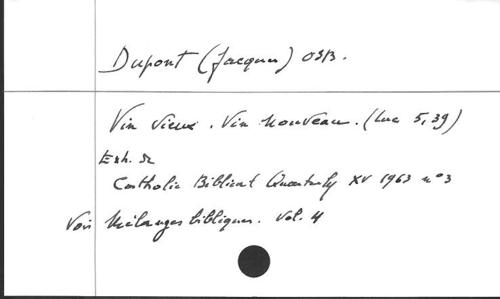 Dupont (Jacques) OSB.
Vin vieux. Vin nouveau. (Luc 5,39)
Extr. de
Catholic Biblical Quarterly XV 1963 n°3
Voir Mélanges bibliques. Vol. 4